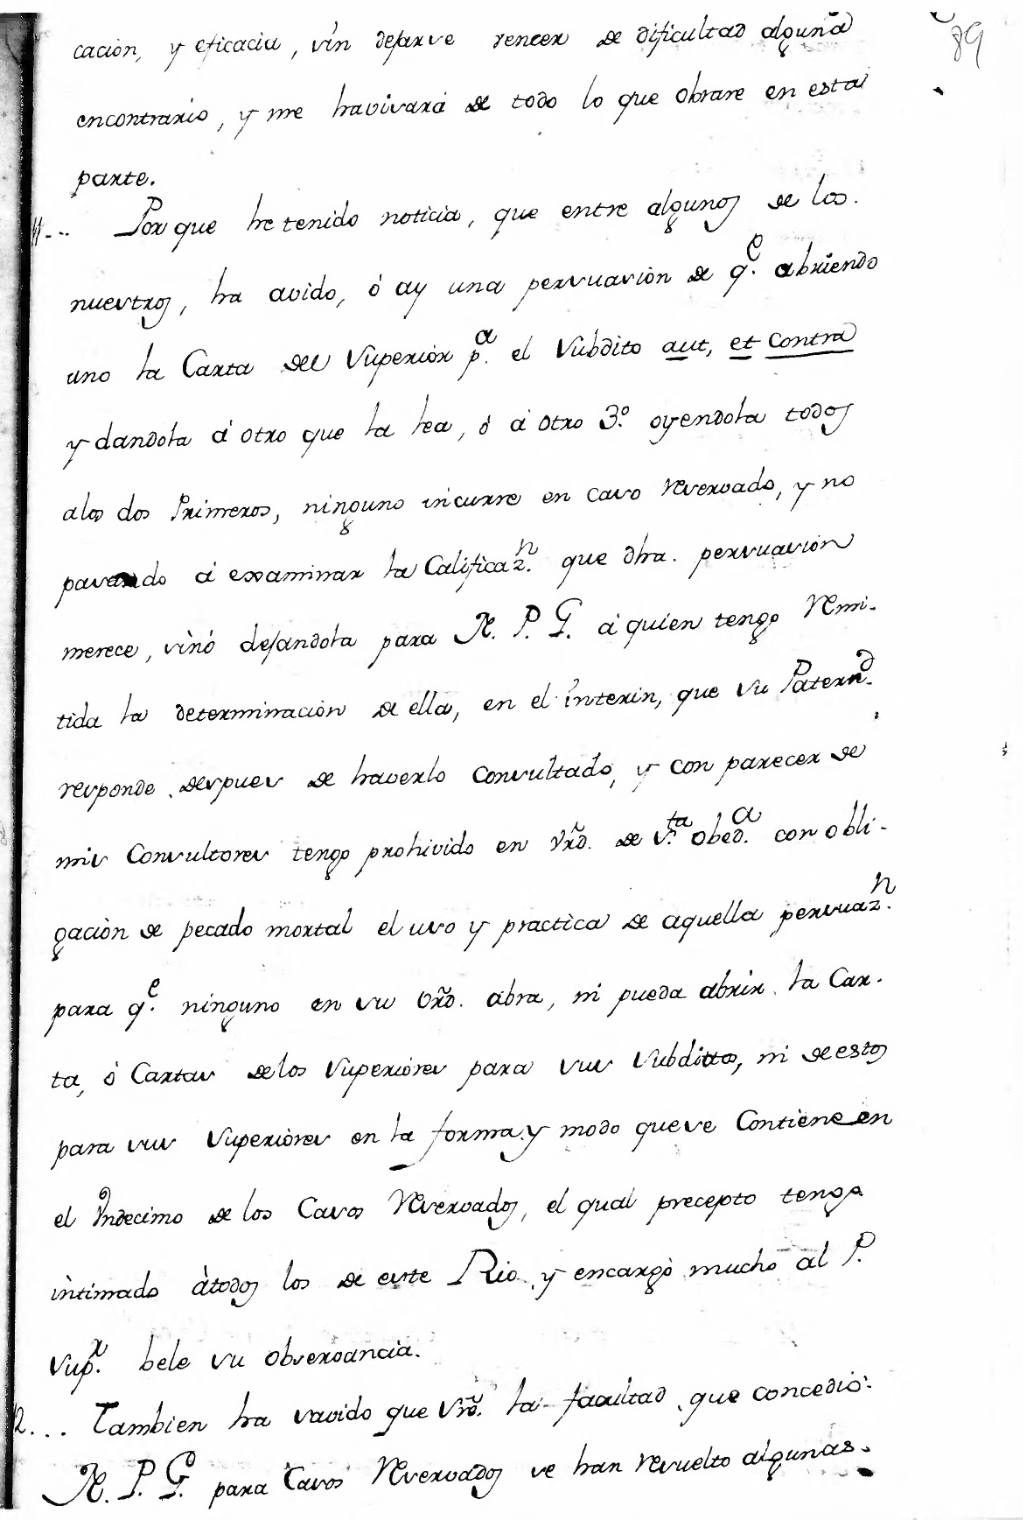 89
cación, y eficacia, sin dejarse vencer de dificultad alguña
encontrario, y me havisará de todo lo que obrare en esta
parte.
11... Porque he tenido noticia, que entre algunos de los.
nuestros, ha avido, ó ay una persuasión de q.e abriendo
uno la Carta del Superiór p.a el Subdito aut, et contra
y dandola á otro que la lea, ó á otro 3.o oyendola todos
alos dos Primeros, ninguno incurre en caso reservado, y no
pasando á examinar la Califica2.n que dha. persuasión
merece, sinó dejandola para N. P. G. á quien tengo remi-
tida la determinación de ella, en el ínterin, que su Patern.d
responde despues de haverlo Consultado, y con parecer de
mis Consultores tengo prohivido en Vrd. de s.ta obed.a con obli-
gación de pecado mortal el uso y practica de aquella persua2.n
para q.e ninguno en su Ord. abra, ni pueda abrir la Car-
ta, ó Cartas delos Superióres para sus Subditos, ni de estos
para sus Superióres en la forma y modo que se Contiene en
el Undecimo de los Casos Reservados, el qual precepto tengo
intimado átodos los de este Rio, y encargó mucho al P.
Sup.r bele su observancia.
12... Tambien ha savido que la facultad que concedió
N. P. G. para Casos Reservados se han resuelto algunas